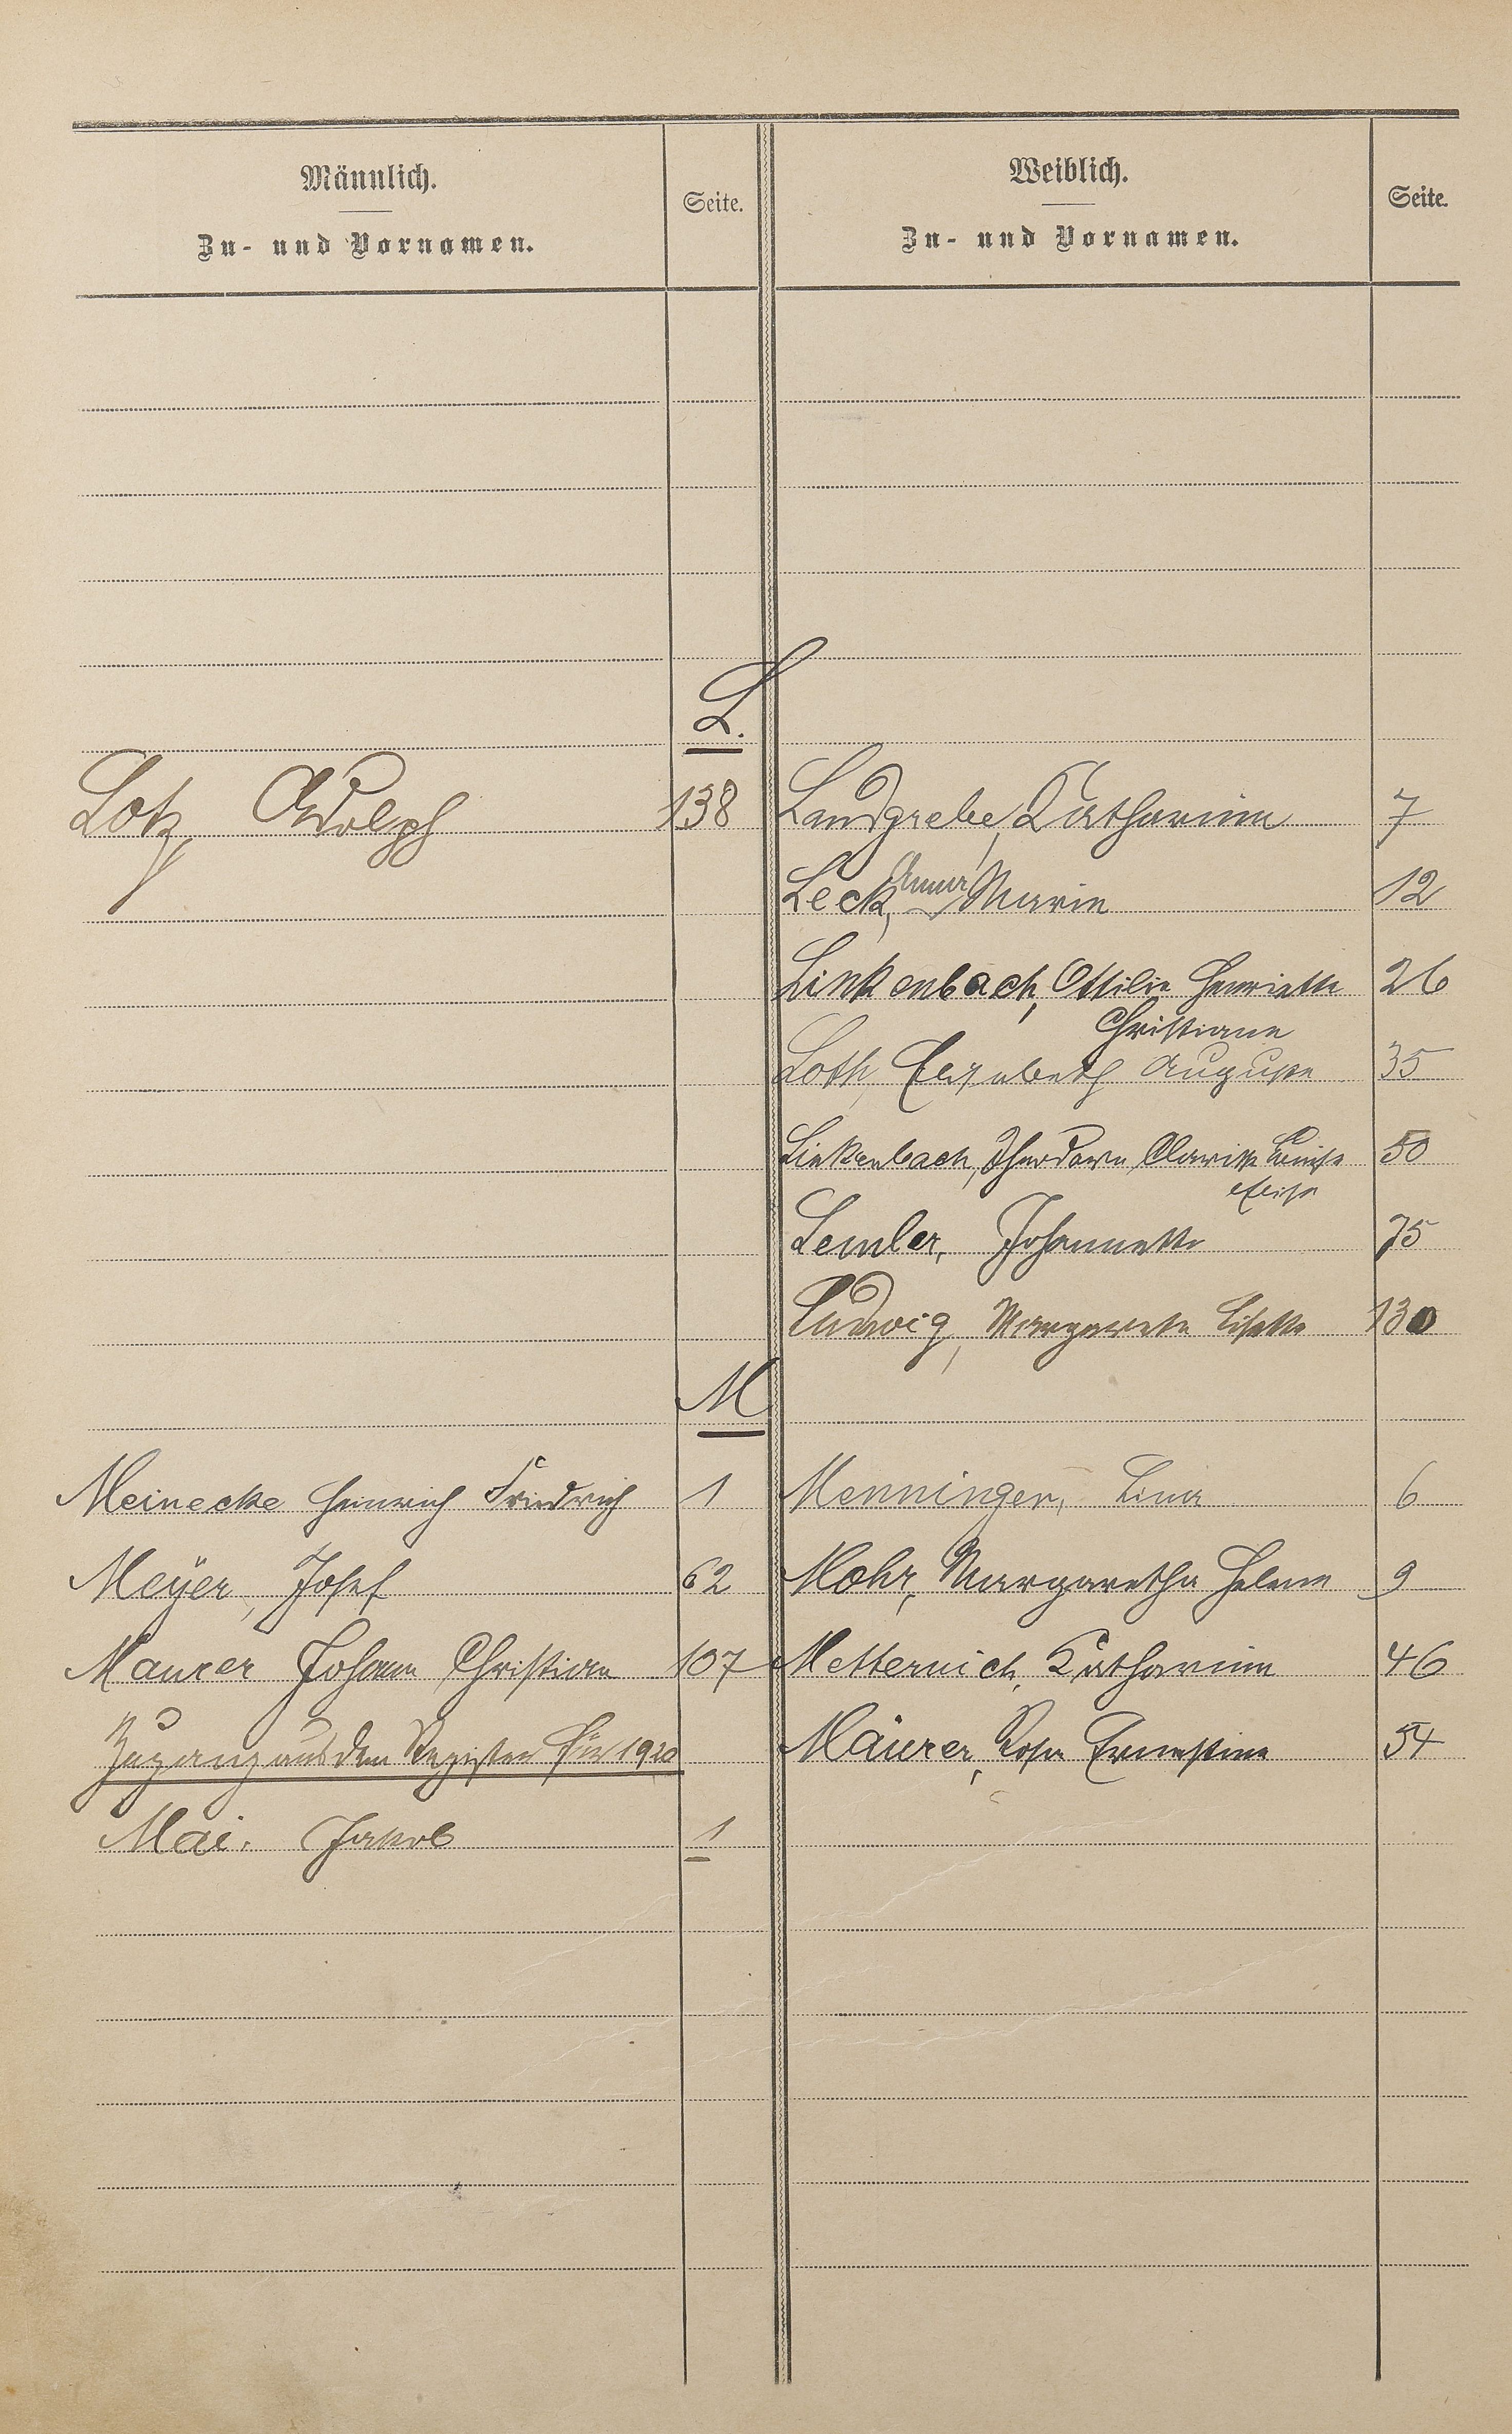 Männlich.
Zu- und Vornamen.
Seite.
Weiblich.
Zu- und Vornamen.
Seite.
L.
Lotz, Adolph 138
Landgrebe, Katharine 7
Leck, Anna Marie 12
Linkenbach, Ottilie Henriette 26
Christiane
Loth, Elisabeth Auguste 35
Linkenbach, Theodore Clarissa Luise 50
Elise
Lemler, Johannette 75
Ludwig, Margarete Lisette 130
M
Meinecke Heinrich Friedrich 1
Menninger, Lina 6
Meÿer, Josef 62
Mohr, Margaretha Helene 9
Maurer Johann Christian 107
Metternich, Katharine 46
Zugang aus dem Register für 1920
Mäurer, Rosa Ernestine 54
Mai. Jakob 1